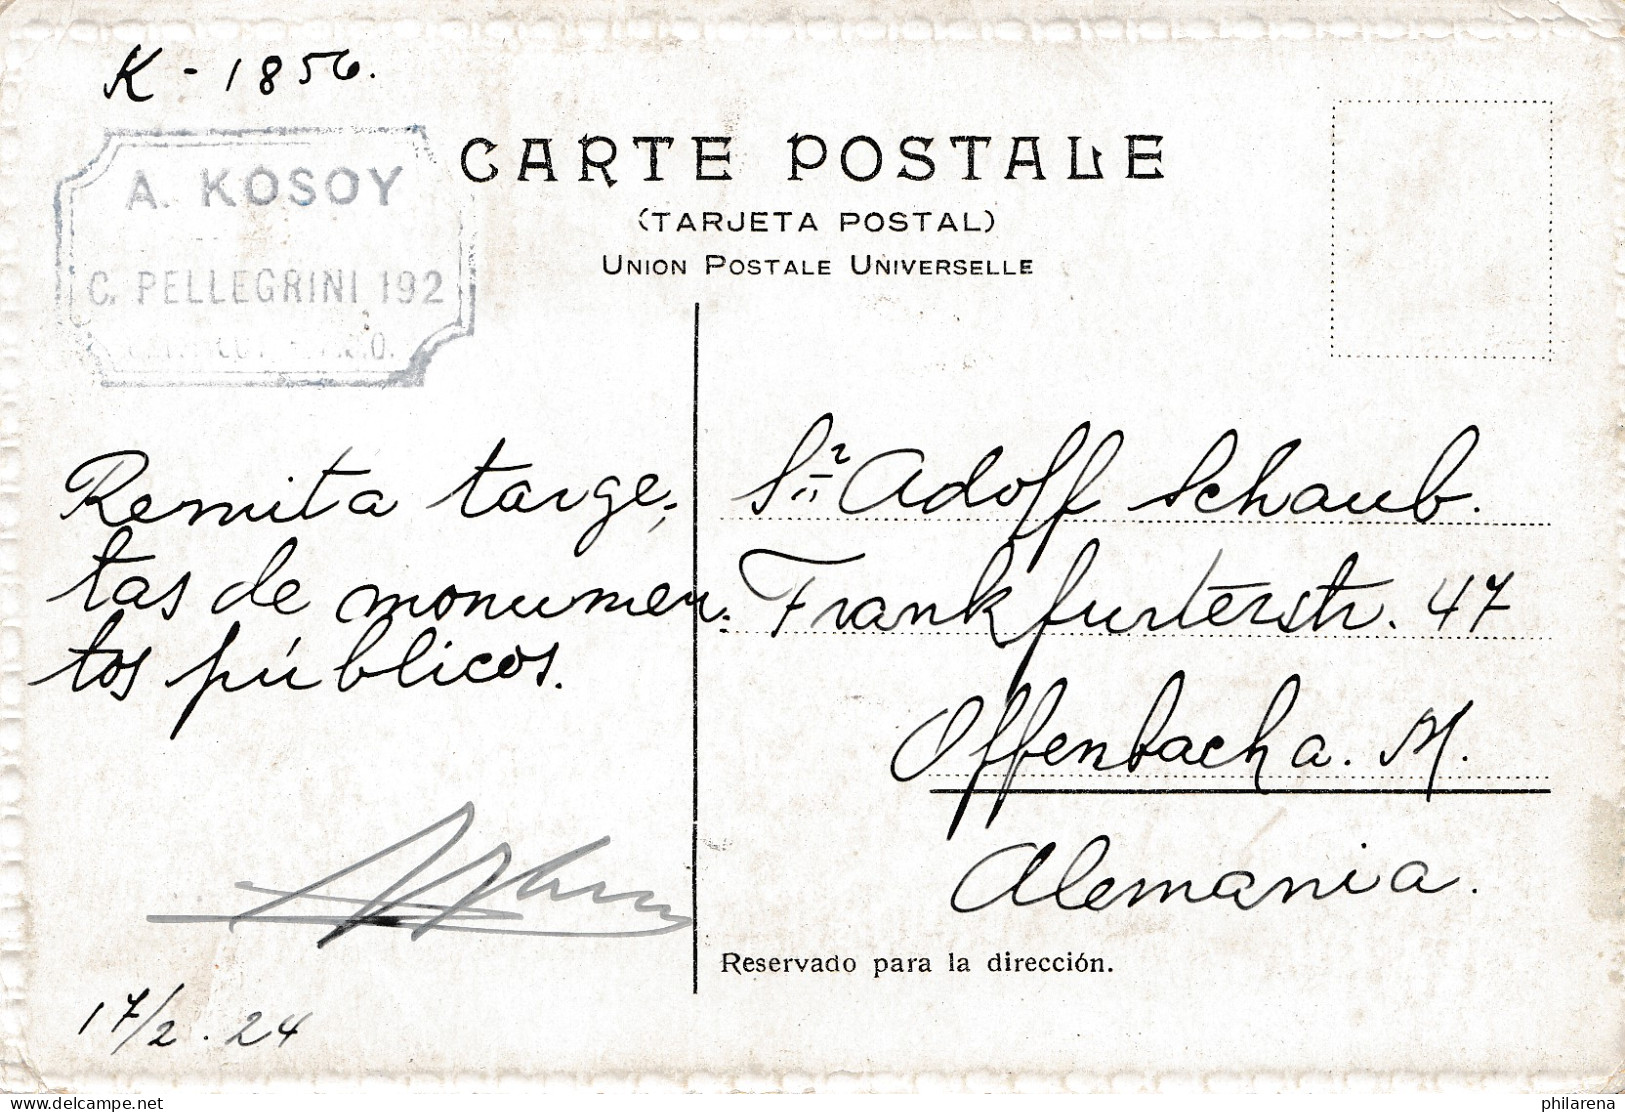 K - 1856.
A. KOSOY
C. PELLEGRINI 192
CARTE POSTALE
(TARJETA POSTAL)
UNION POSTALE UNIVERSELLE
Remita targe-
tas de monumen-
tos públicos.
17/2. 24
Sr Adolf Schaub.
Frankfurterstr. 47
Offenbach a. M.
Alemania.
Reservado para la dirección.
www.delcampe.net
philarena